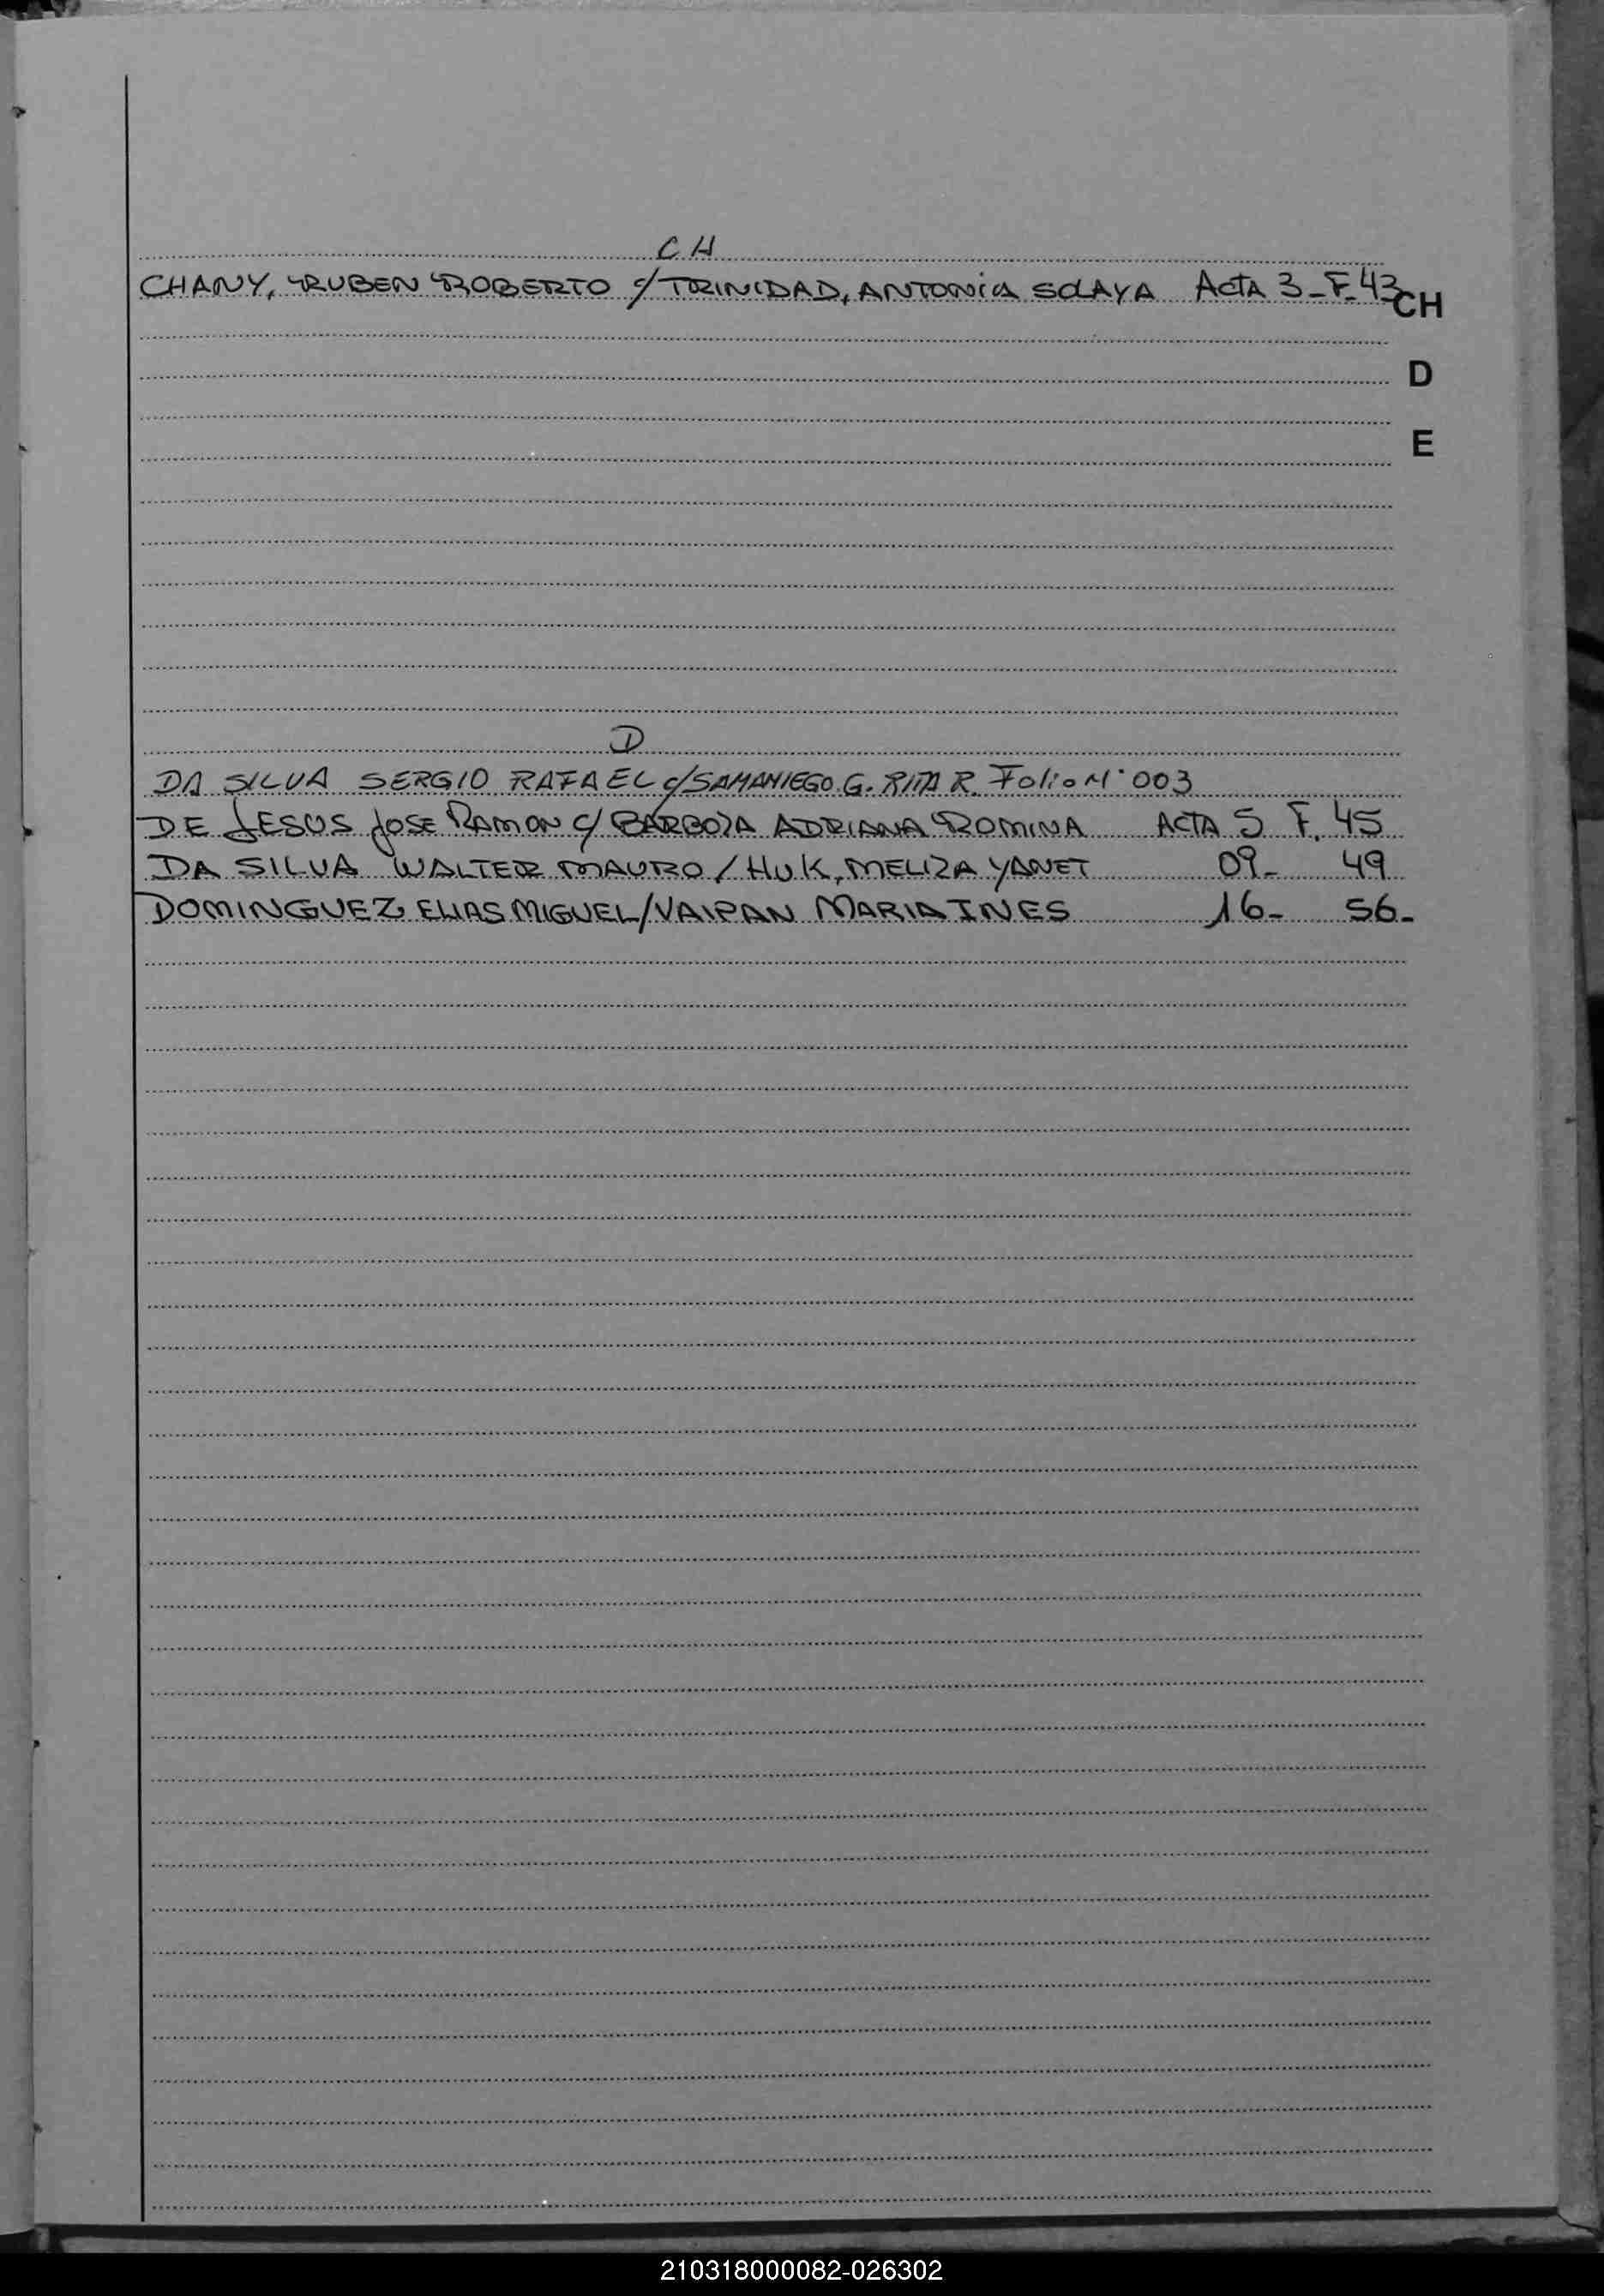 CH
CHANY, RUBEN ROBERTO c/ TRINIDAD, ANTONIA SOLAYA Acta 3 - F. 43
CH
D
E
D
DA SILVA SERGIO RAFAEL c/ SAMANIEGO G. RITA R. Folio N° 003
DE JESUS JOSE RAMON c/ BARBOZA ADRIANA ROMINA ACTA 5 F. 45
DA SILVA WALTER MAURO / HUK, MELIZA YANET 09- 49
DOMINGUEZ ELIAS MIGUEL / VAIPAN MARIA INES 16- 56-
210318000082-026302